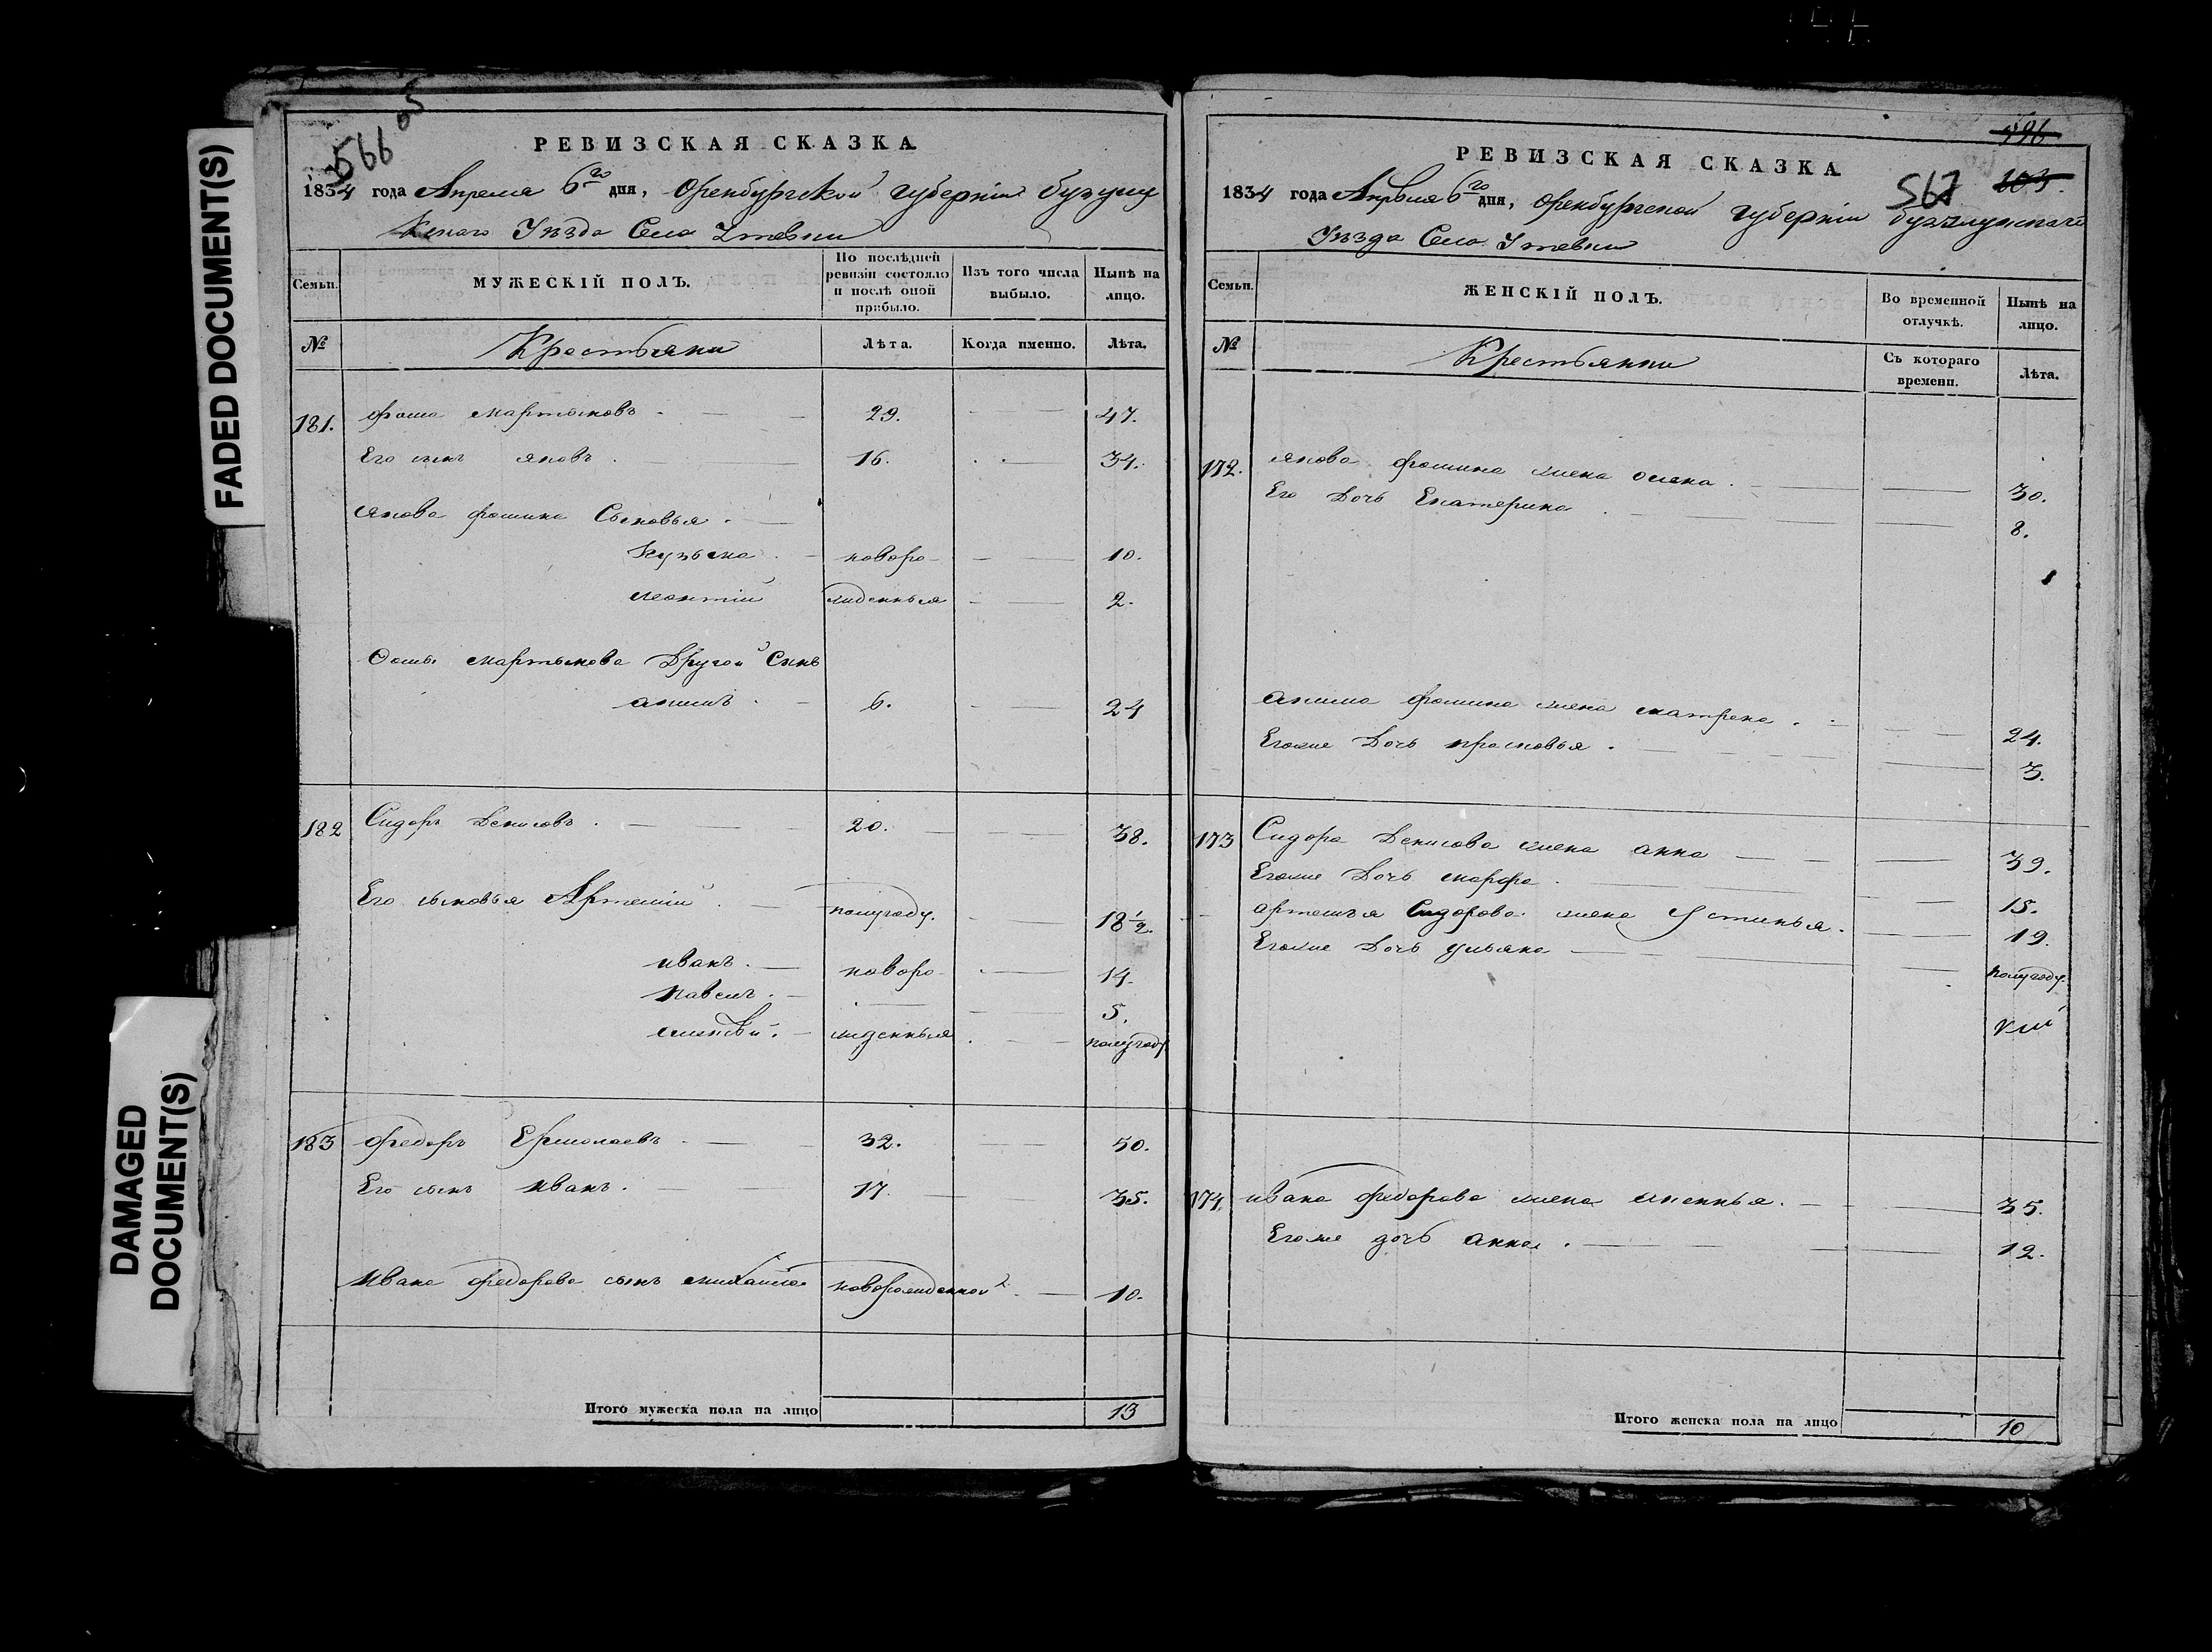 FADED DOCUMENT(S)
DAMAGED
DOCUMENT(S)
566
РЕВИЗСКАЯ СКАЗКА
1834 года Апреля 6го дня, Оренбургской губернiи бузулу
кскаго Уѣзда Села Утевки
Семьи. МУЖЕСКІЙ ПОЛЪ. По послѣдней ревизіи состояло и послѣ оной прибыло. Изъ того числа выбыло. Нынѣ на лицо.
№ Крестьяни Лѣта. Когда именно. Лѣта.
181. фома мартыновъ 29. 47.
Его сынъ яковъ 16. 34.
якова фомина Сыновья
Кузьма новоро 10.
леонтій жденныя 2.
Фомы мартынова Другой Сынъ
акимъ 6. 24
182 Сидоръ Денисовъ 20. 38.
Его сыновья Артемій полугоду. 18 1/2.
иванъ новоро 14.
павелъ 5.
жденныя полугоду
183 федоръ Ермолаевъ 32. 50.
Его сынъ Иванъ 17. 35.
Ивана федорова сынъ михайла новорожденной 10.
Итого мужеска пола на лицо 13
596
РЕВИЗСКАЯ СКАЗКА
567 103.
1834 года Апрѣля 6го дня, Оренбургской губерніи бузулукскаго
Уѣзда Села Утевки
Семьи. ЖЕНСКІЙ ПОЛЪ. Во временной отлучкѣ. Нынѣ на лицо.
№ Крестьянки Съ котораго времени. Лѣта.
172. якова фомина жена 30.
Его Дочь Екатерина 8.
акима фомина жена матрена 24.
Егоже Дочь прасковья 3.
173 Сидора Денисова жена анна 39.
Егоже Дочь марфа 15.
артемья Сидорова жена Устинья 19.
Егоже Дочь ульяна полугоду.
174. ивана федорова жена 35.
Егоже дочь анна 12.
Итого женска пола на лицо 10